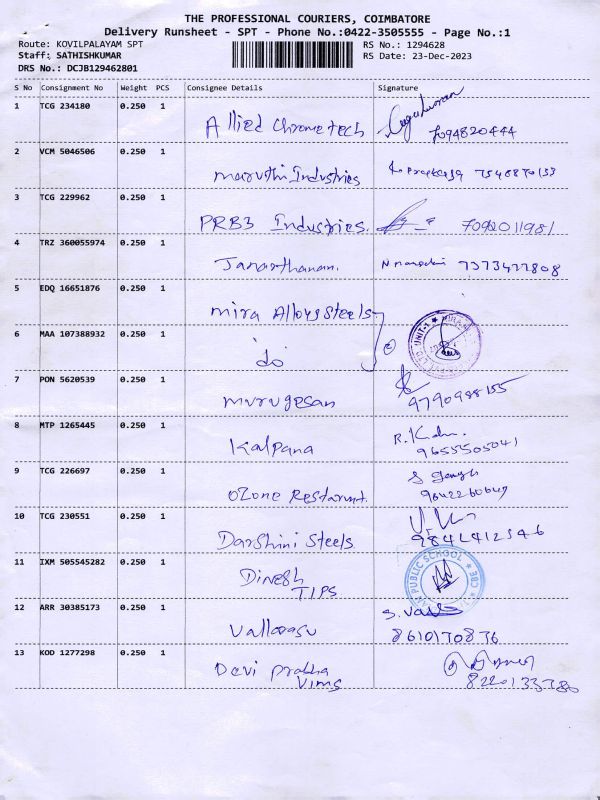 THE PROFESSIONAL COURIERS, COIMBATORE
Delivery Runsheet - SPT - Phone No.:0422-3505555 - Page No.:1
Route: KOVILPALAYAM SPT RS No.: 1294628
Staff: SATHISHKUMAR RS Date: 23-Dec-2023
DRS No.: DCJB129462801
S No Consignment No Weight PCS Consignee Details Signature
1 TCG 234180 0.250 1 Allied Chrometech 7094820444
2 VCM 5046506 0.250 1 Maruthi Industries
3 TCG 229962 0.250 1 PRB3 Industries. 7092011981
4 TRZ 360055974 0.250 1 Janarthanan. 7373477808
5 EDQ 16651876 0.250 1 Mira Alloy Steels
6 MAA 107388932 0.250 1 do UNIT-1
7 PON 5620539 0.250 1 Murugesan 9790988155
8 MTP 1265445 0.250 1 Kalpana 9655505041
9 TCG 226697 0.250 1 Ozone Restarunt.
10 TCG 230551 0.250 1 Darshini Steels
11 IXM 505545282 0.250 1 Dinesh PUBLIC SCHOOL CBE
TIPS
12 ARR 30385173 0.250 1 Vallarasu 8610170876
13 KOD 1277298 0.250 1 Devi Prabha
Vims